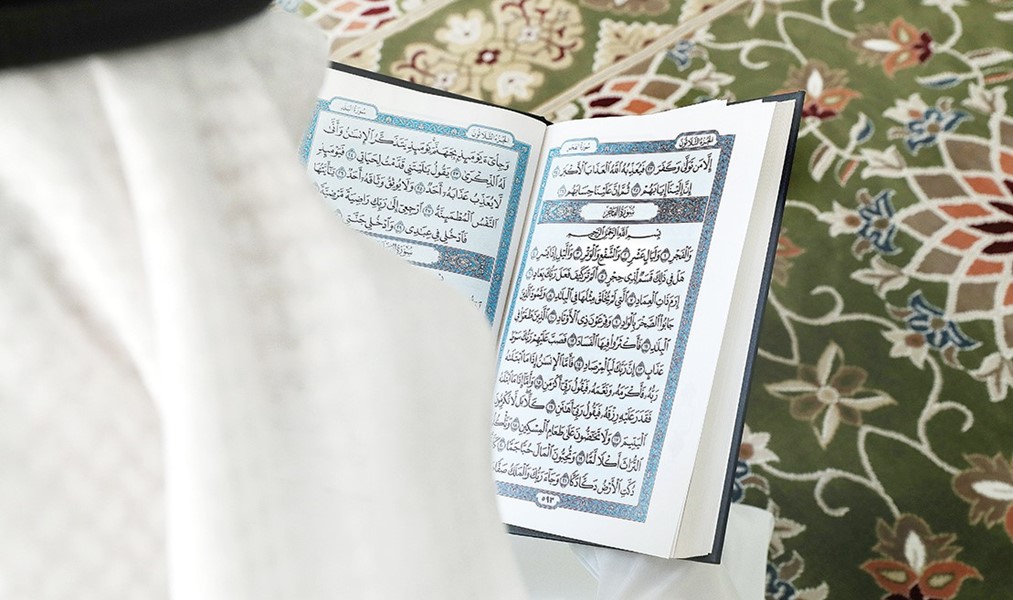 الجزء الثلاثون سورة الفجر
إِلَّا مَن تَوَلَّىٰ وَكَفَرَ ٢٣ فَيُعَذِّبُهُ ٱللَّهُ ٱلْعَذَابَ ٱلْأَكْبَرَ ٢٤
إِنَّ إِلَيْنَآ إِيَابَهُمْ ٢٥ ثُمَّ إِنَّ عَلَيْنَا حِسَابَهُم ٢٦
سورة الفجر
بِسْمِ ٱللَّهِ ٱلرَّحْمَٰنِ ٱلرَّحِيمِ
وَٱلْفَجْرِ ١ وَلَيَالٍ عَشْرٍ ٢ وَٱلشَّفْعِ وَٱلْوَتْرِ ٣ وَٱلَّيْلِ إِذَا يَسْرِ ٤
هَلْ فِي ذَٰلِكَ قَسَمٌ لِّذِي حِجْرٍ ٥ أَلَمْ تَرَ كَيْفَ فَعَلَ رَبُّكَ بِعَادٍ ٦
إِرَمَ ذَاتِ ٱلْعِمَادِ ٧ ٱلَّتِي لَمْ يُخْلَقْ مِثْلُهَا فِي ٱلْبِلَٰدِ ٨ وَثَمُودَ ٱلَّذِينَ
جَابُوا۟ ٱلصَّخْرَ بِٱلْوَادِ ٩ وَفِرْعَوْنَ ذِي ٱلْأَوْتَادِ ١٠ ٱلَّذِينَ طَغَوْا۟ فِي
ٱلْبِلَٰدِ ١١ فَأَكْثَرُوا۟ فِيهَا ٱلْفَسَادَ ١٢ فَصَبَّ عَلَيْهِمْ رَبُّكَ سَوْطَ
عَذَابٍ ١٣ إِنَّ رَبَّكَ لَبِٱلْمِرْصَادِ ١٤ فَأَمَّا ٱلْإِنسَٰنُ إِذَا مَا ٱبْتَلَىٰهُ
رَبُّهُۥ فَأَكْرَمَهُۥ وَنَعَّمَهُۥ فَيَقُولُ رَبِّىٓ أَكْرَمَنِ ١٥ وَأَمَّآ إِذَا مَا ٱبْتَلَىٰهُ
فَقَدَرَ عَلَيْهِ رِزْقَهُۥ فَيَقُولُ رَبِّىٓ أَهَٰنَنِ ١٦ كَلَّا بَل لَّا تُكْرِمُونَ
ٱلْيَتِيمَ ١٧ وَلَا تَحَٰٓضُّونَ عَلَىٰ طَعَامِ ٱلْمِسْكِينِ ١٨
ٱلتُّرَاثَ أَكْلًا لَّمًّا ١٩ وَتُحِبُّونَ ٱلْمَالَ حُبًّا جَمًّا ٢٠
دُكَّتِ ٱلْأَرْضُ دَكًّا دَكًّا ٢١ وَجَآءَ رَبُّكَ وَٱلْمَلَكُ صَفًّا
٥٩٣
الجزء الثلاثون سورة البلد
وَجِا۟ىٓءَ يَوْمَئِذٍۭ بِجَهَنَّمَ يَوْمَئِذٍ يَتَذَكَّرُ ٱلْإِنسَٰنُ وَأَنَّىٰ
لَهُ ٱلذِّكْرَىٰ ٢٣ يَقُولُ يَٰلَيْتَنِي قَدَّمْتُ لِحَيَاتِي ٢٤ فَيَوْمَئِذٍ
لَّا يُعَذِّبُ عَذَابَهُۥٓ أَحَدٌ ٢٥ وَلَا يُوثِقُ وَثَاقَهُۥٓ أَحَدٌ ٢٦ يَٰٓأَيَّتُهَا
ٱلنَّفْسُ ٱلْمُطْمَئِنَّةُ ٢٧ ٱرْجِعِىٓ إِلَىٰ رَبِّكِ رَاضِيَةً مَّرْضِيَّةً
فَٱدْخُلِي فِي عِبَٰدِي ٢٩ وَٱدْخُلِي جَنَّتِي
سورة